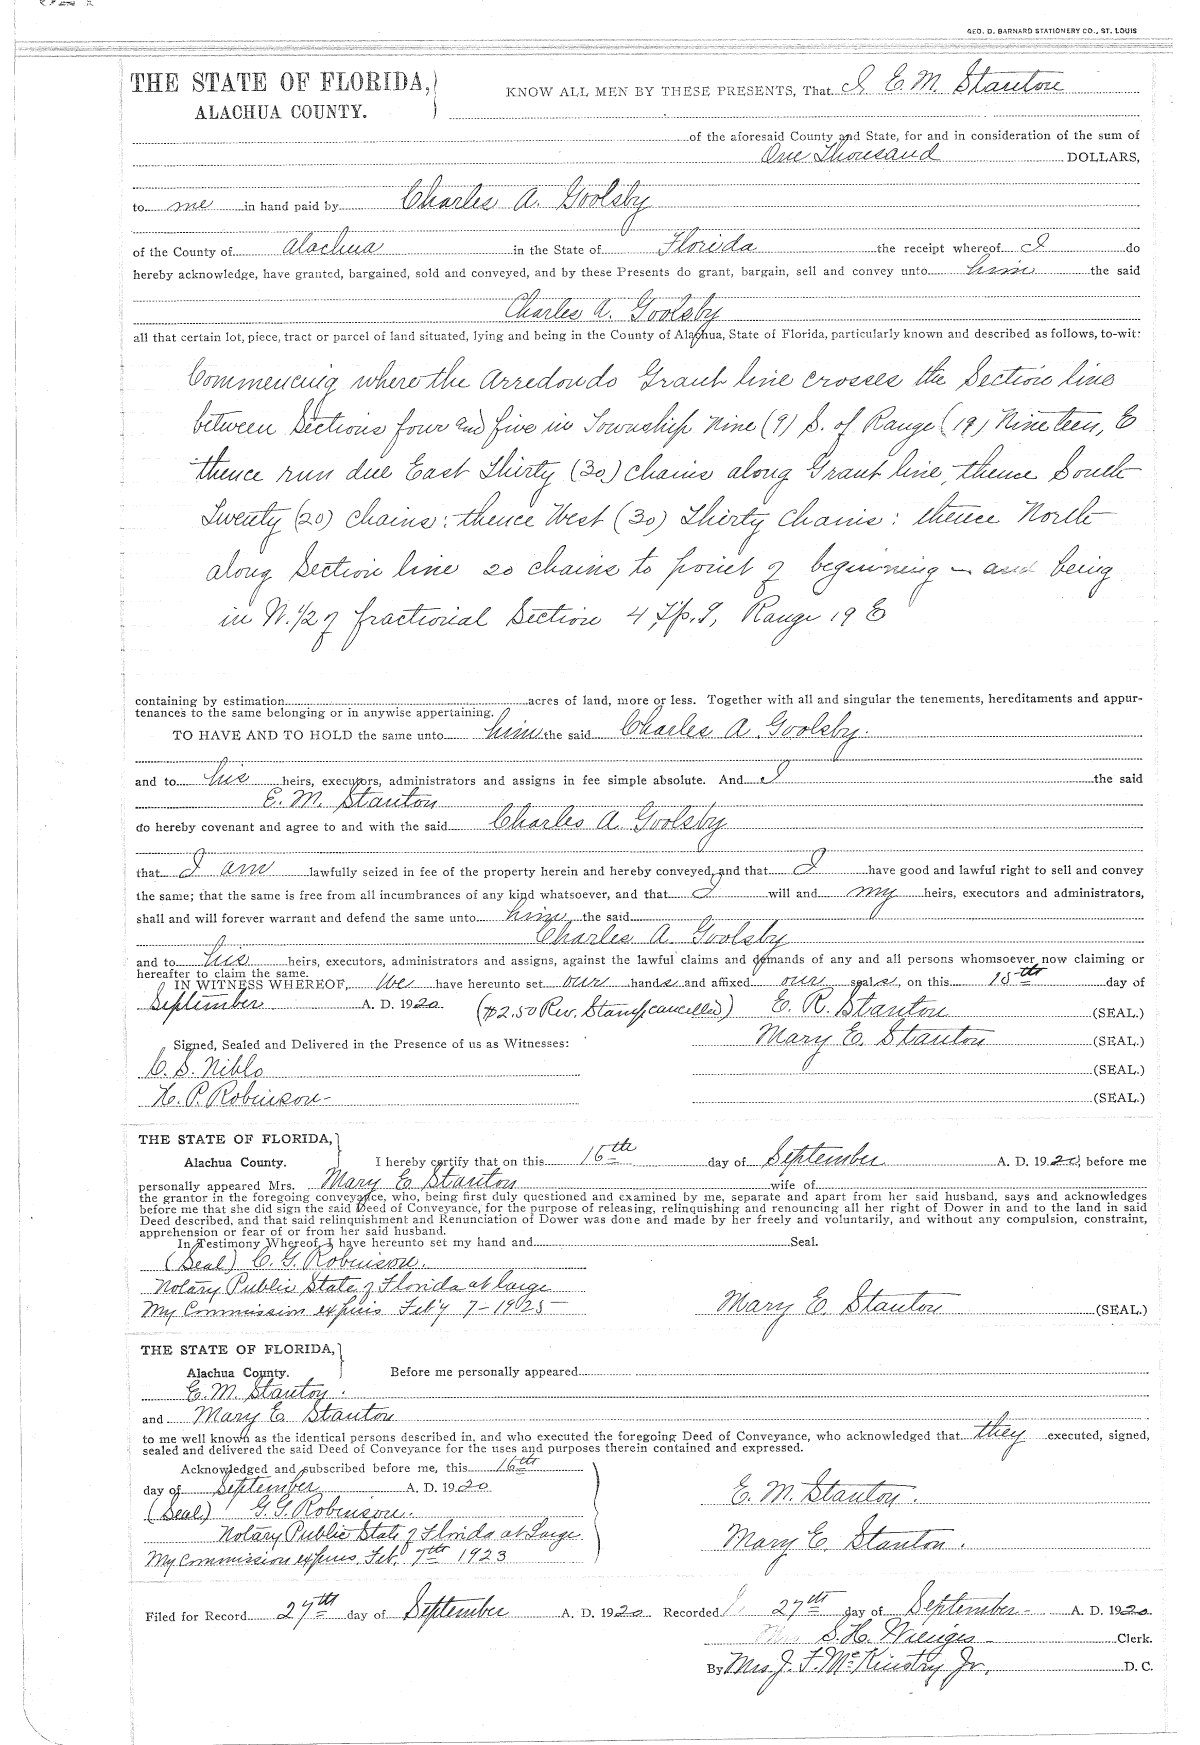 GEO. D. BARNARD STATIONERY CO., ST. LOUIS
THE STATE OF FLORIDA,
ALACHUA COUNTY.
KNOW ALL MEN BY THESE PRESENTS, That I E. M. Stanton
of the aforesaid County and State, for and in consideration of the sum of
One Thousand DOLLARS,
to me in hand paid by Charles A. Goolsby
of the County of Alachua in the State of Florida the receipt whereof I do
hereby acknowledge, have granted, bargained, sold and conveyed, and by these Presents do grant, bargain, sell and convey unto him the said
Charles A. Goolsby
all that certain lot, piece, tract or parcel of land situated, lying and being in the County of Alachua, State of Florida, particularly known and described as follows, to-wit:
Commencing where the Arredondo Grant line crosses the Section line
between Sections four and five in Township Nine (9) S. of Range (19) Nineteen, E
thence run due East Thirty (30) chains along Grant line, thence South
Twenty (20) chains; thence West (30) Thirty Chains: thence North
along Section line 20 chains to point of beginning - and being
in N. 1/2 of fractional Section 4 T'p. 9, Range 19 E
containing by estimation acres of land, more or less. Together with all and singular the tenements, hereditaments and appur-
tenances to the same belonging or in anywise appertaining.
TO HAVE AND TO HOLD the same unto him the said Charles A. Goolsby.
and to his heirs, executors, administrators and assigns in fee simple absolute. And I the said
E. M. Stanton
do hereby covenant and agree to and with the said Charles A Goolsby
that I am lawfully seized in fee of the property herein and hereby conveyed, and that I have good and lawful right to sell and convey
the same; that the same is free from all incumbrances of any kind whatsoever, and that I will and my heirs, executors and administrators,
shall and will forever warrant and defend the same unto him the said
Charles A. Goolsby
and to his heirs, executors, administrators and assigns, against the lawful claims and demands of any and all persons whomsoever now claiming or
hereafter to claim the same.
IN WITNESS WHEREOF, We have hereunto set our hands and affixed our seals, on this 15th day of
September A. D. 1920. ($2.50 Rev. Stamp cancelled) E. R. Stanton (SEAL.)
Mary E. Stanton (SEAL.)
Signed, Sealed and Delivered in the Presence of us as Witnesses:
C. S. Niblo (SEAL.)
H. P. Robinson- (SEAL.)
THE STATE OF FLORIDA,
Alachua County. I hereby certify that on this 16th day of September A. D. 1920, before me
personally appeared Mrs. Mary E Stanton wife of
the grantor in the foregoing conveyance, who, being first duly questioned and examined by me, separate and apart from her said husband, says and acknowledges
before me that she did sign the said Deed of Conveyance, for the purpose of releasing, relinquishing and renouncing all her right of Dower in and to the land in said
Deed described, and that said relinquishment and Renunciation of Dower was done and made by her freely and voluntarily, and without any compulsion, constraint,
apprehension or fear of or from her said husband.
In Testimony Whereof, I have hereunto set my hand and Seal.
(Seal) C. G. Robinson.
Notary Public State of Florida at large
My Commission expires Feb'y 7-1923- Mary E. Stanton (SEAL.)
THE STATE OF FLORIDA,
Alachua County. Before me personally appeared
E. M. Stanton.
and Mary E Stanton
to me well known as the identical persons described in, and who executed the foregoing Deed of Conveyance, who acknowledged that they executed, signed,
sealed and delivered the said Deed of Conveyance for the uses and purposes therein contained and expressed.
Acknowledged and subscribed before me, this 16th
day of September A. D. 1920
(Seal) G. G. Robinson.
Notary Public State of Florida at Large
My Commission expires Feb. 7th 1923
E. M. Stanton.
Mary E. Stanton.
Filed for Record 27th day of September A. D. 1920 Recorded 27th day of September- A. D. 1920.
S. H. Wienges Clerk.
By Mrs. J. F. McKinstry Jr. D. C.